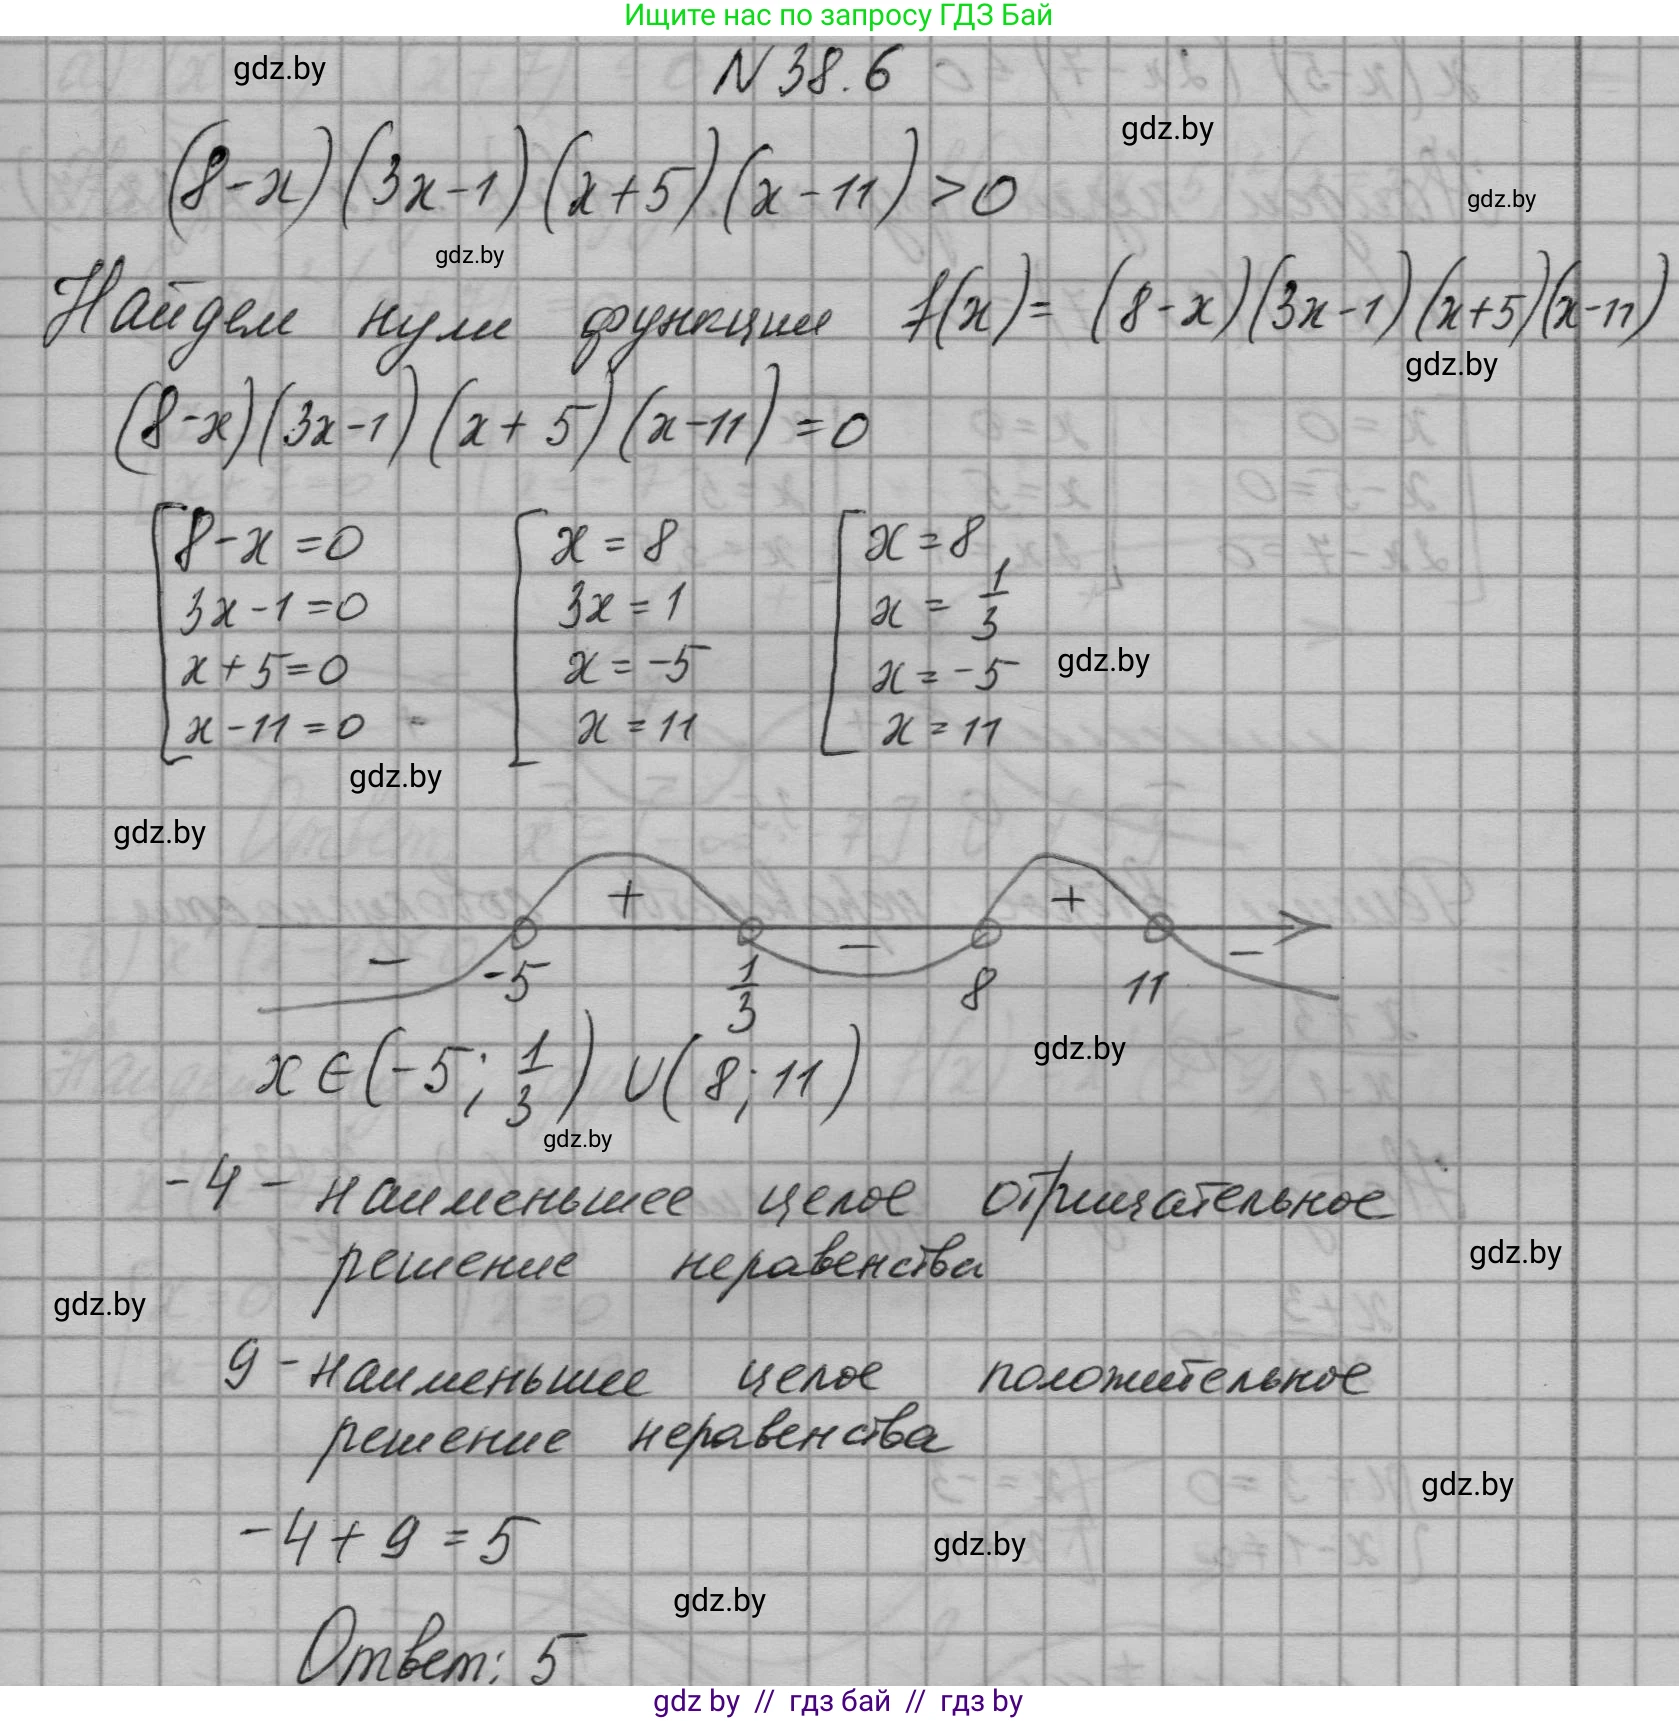 Ищите нас по запросу ГДЗ Бай
gdz.by
N 38.6
gdz.by
(8-x)(3x-1)(x+5)(x-11)>0
gdz.by
gdz.by
Найдем нули функции f(x)= (8-x)(3x-1)(x+5)(x-11)
gdz.by
(8-x)(3x-1)(x+5)(x-11)=0
8-x=0 x=8 x=8
3x-1=0 3x=1 x=1/3
x+5=0 x=-5 x=-5
gdz.by
x-11=0 x=11 x=11
gdz.by
gdz.by
+ +
- - -
-5 1/3 8 11
gdz.by
x∈(-5; 1/3) ∪ (8; 11)
gdz.by
-4 - наименьшее целое отрицательное
решение неравенства
gdz.by
gdz.by
9 - наименьшее целое положительное
решение неравенства
gdz.by
-4+9=5
gdz.by
gdz.by
Ответ: 5
gdz by // гдз бай // гдз by